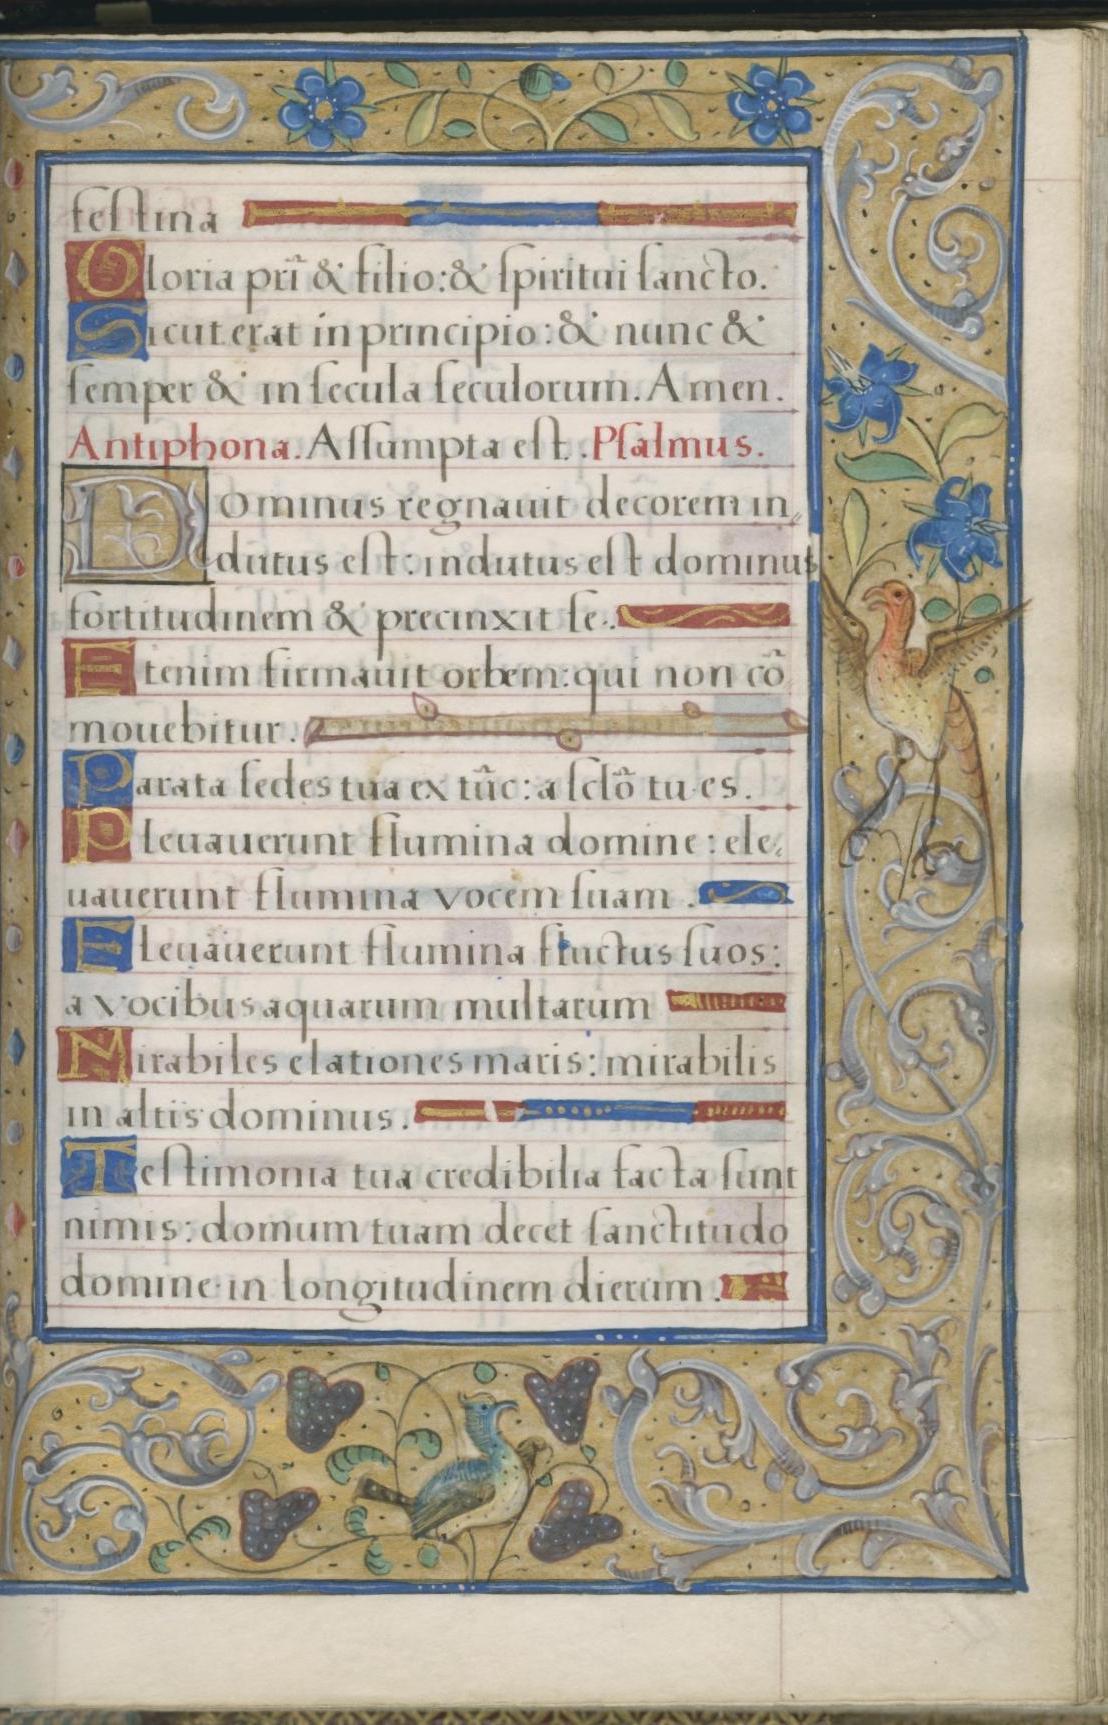 festina
Gloria pr̃i & filio: & spiritui sancto.
Sicut erat in principio: & nunc &
semper & in secula seculorum. Amen.
Antiphona. Assumpta est. Psalmus.
Dominus regnauit decorem in
dutus est: indutus est dominus
fortitudinem & precinxit se.
Etenim firmauit orbem: qui non cõ
mouebitur.
Parata sedes tua ex tũc: a sclõ tu es.
Pleuauerunt flumina domine: ele
uauerunt flumina vocem suam.
Eleuauerunt flumina fluctus suos:
a vocibus aquarum multarum
Mirabiles elationes maris: mirabilis
in altis dominus.
Testimonia tua credibilia facta sunt
nimis: domum tuam decet sanctitudo
domine in longitudinem dierum.